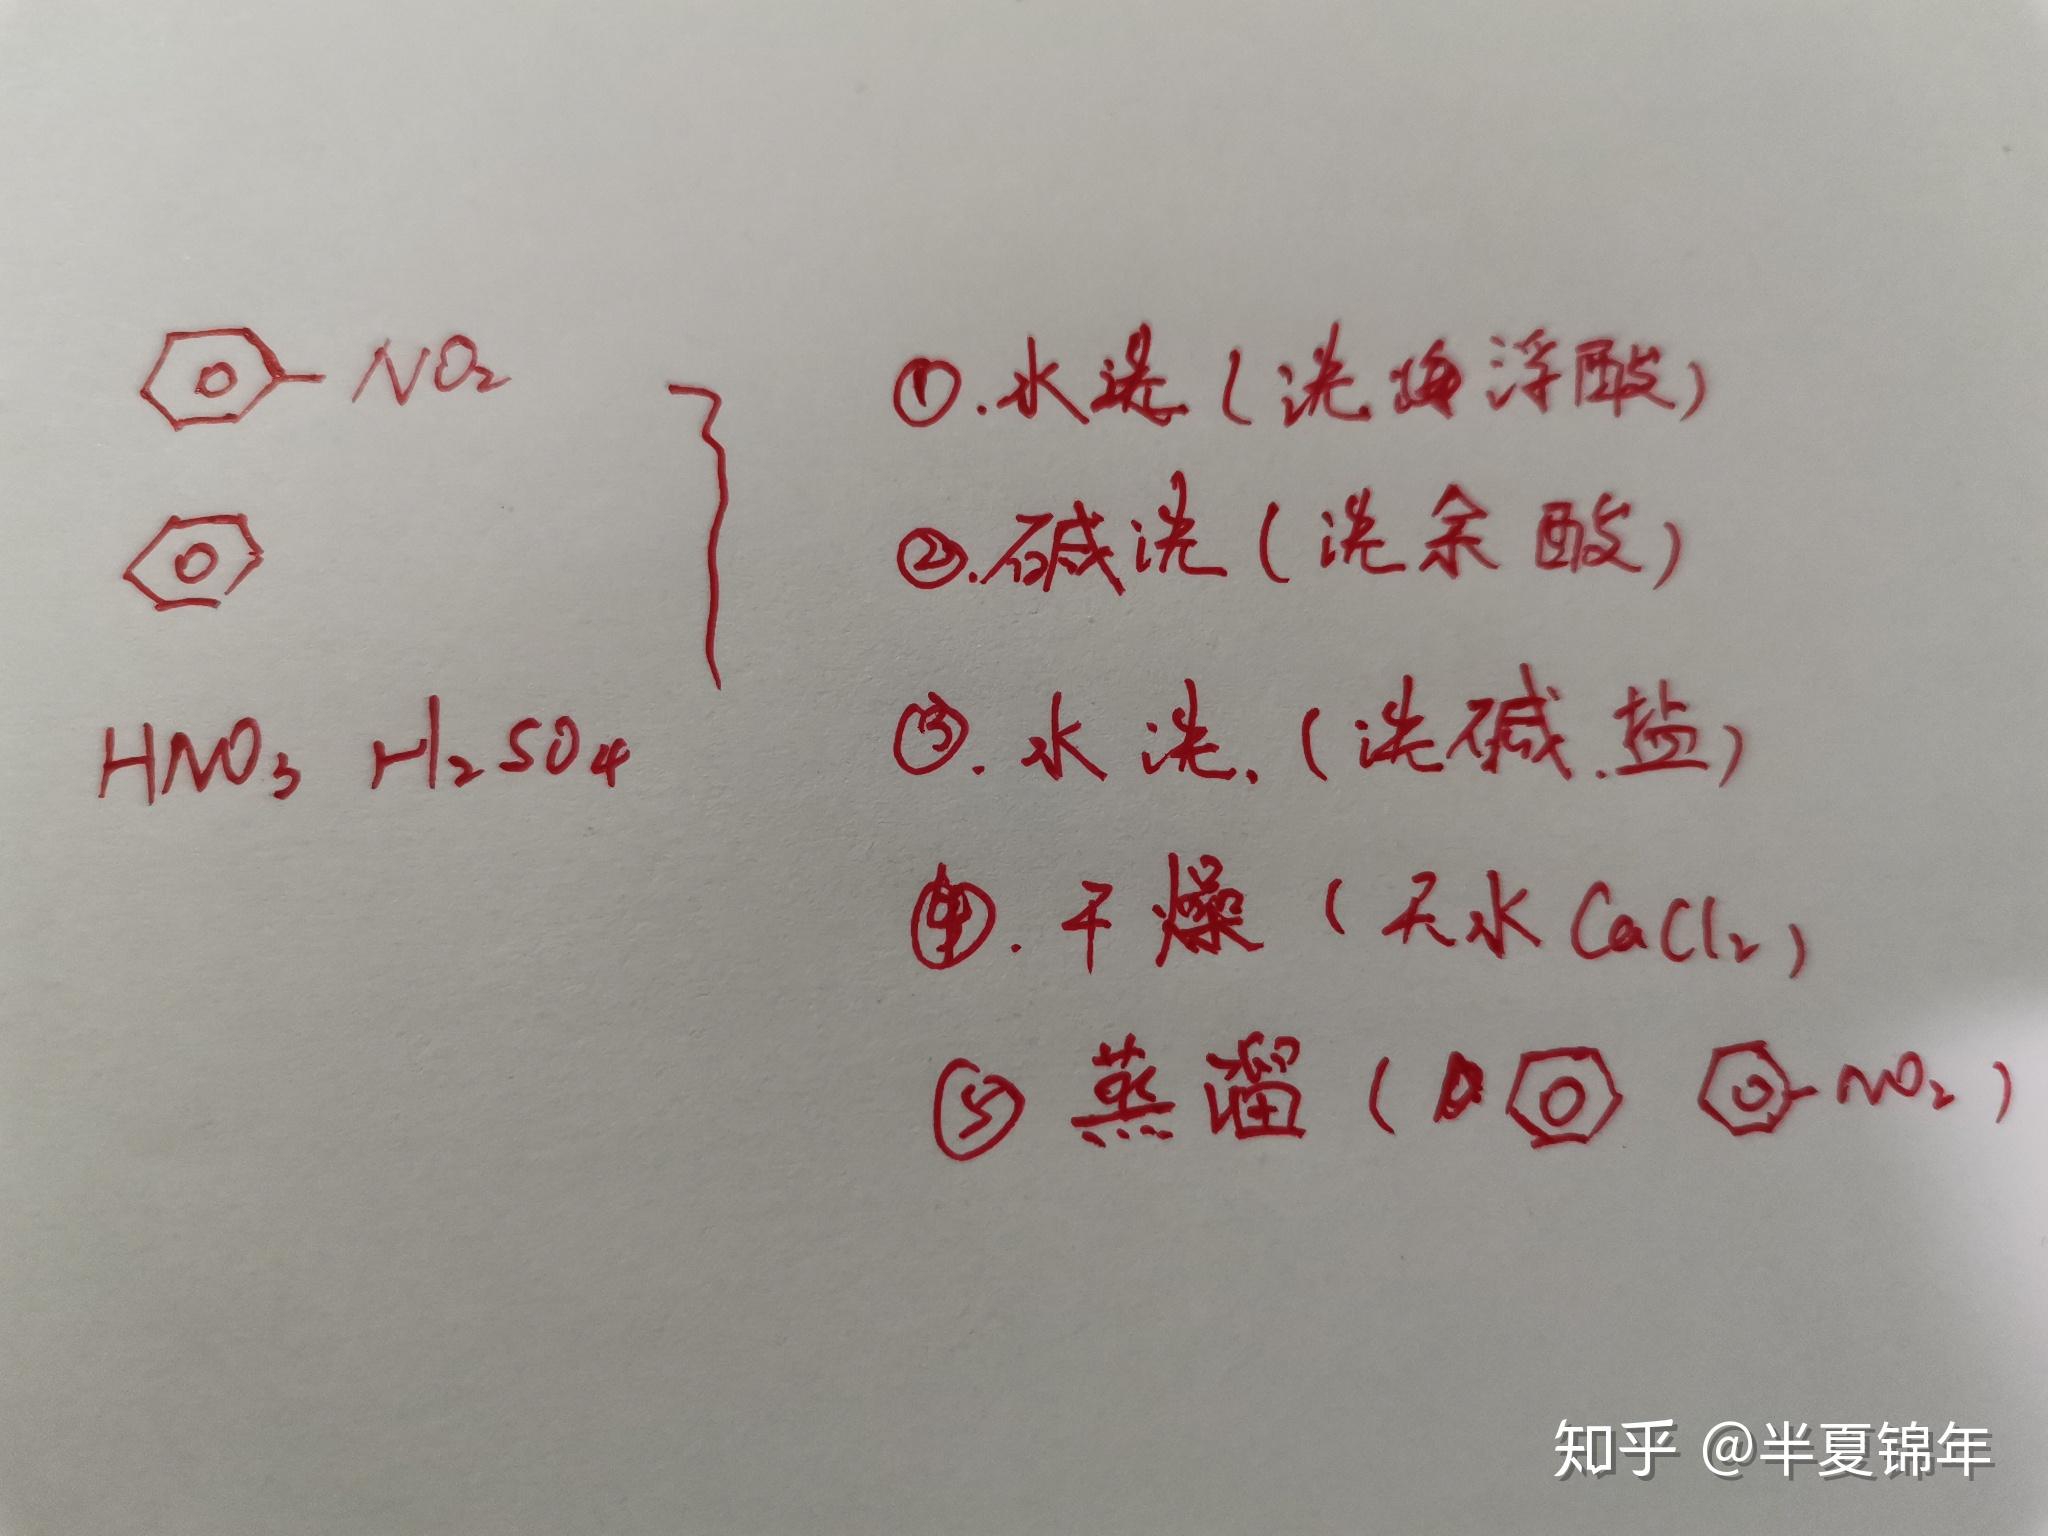 NO2
HNO3 H2SO4
①.水洗(洗浮酸)
②.碱洗(洗余酸)
③.水洗.(洗碱.盐)
④.干燥(无水CaCl2)
⑤蒸馏(NO2)
知乎 @半夏锦年